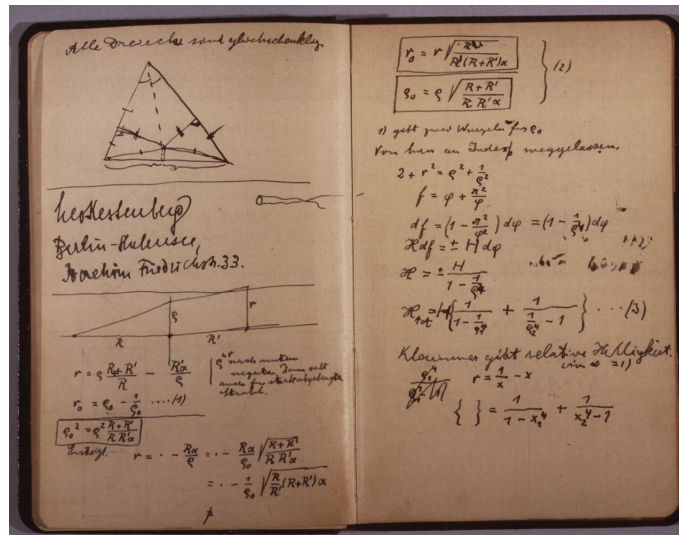 Alle Dreiecke sind gleichschenklig.
Leo Kestenberg
Berlin-Halensee,
Joachim Friedrichstr. 33.
ρ
r
R
R'
r = ρ (R+R')/R − R'α/ρ
ρ nach unten
negativ. Dann gilt
auch für
Strahl.
r₀ = ρ₀ − 1/ρ₀ .... (1)
ρ₀² = ρ² (R+R')/(R R'α)
r = · − Rα/ρ = · − Rα/ρ₀ √((R+R')/(R R'α))
= · − 1/ρ₀ √(R/R' (R+R')α)
r₀ = r √(R/(R'(R+R')α))
ρ₀ = ρ √((R+R')/(R R'α))
} (2)
1) gibt zwei Wurzeln für ρ₀
Von nun an Index weggelassen.
2 + r² = ρ² + 1/ρ²
f = φ + π²/φ
df = (1 − π²/φ²) dφ = (1 − 1/ρ⁴) dφ
ℋdf = ± H dφ
ℋ = ± H/(1 − 1/ρ⁴)
ℋtot = H {1/(1 − 1/ρ₁⁴) + 1/(1/ρ₂⁴ − 1)} ... (3)
Klammer gibt relative Helligkeit.
r = 1/x − x
{ } = 1/(1 − x₁⁴) + 1/(x₂⁴ − 1)